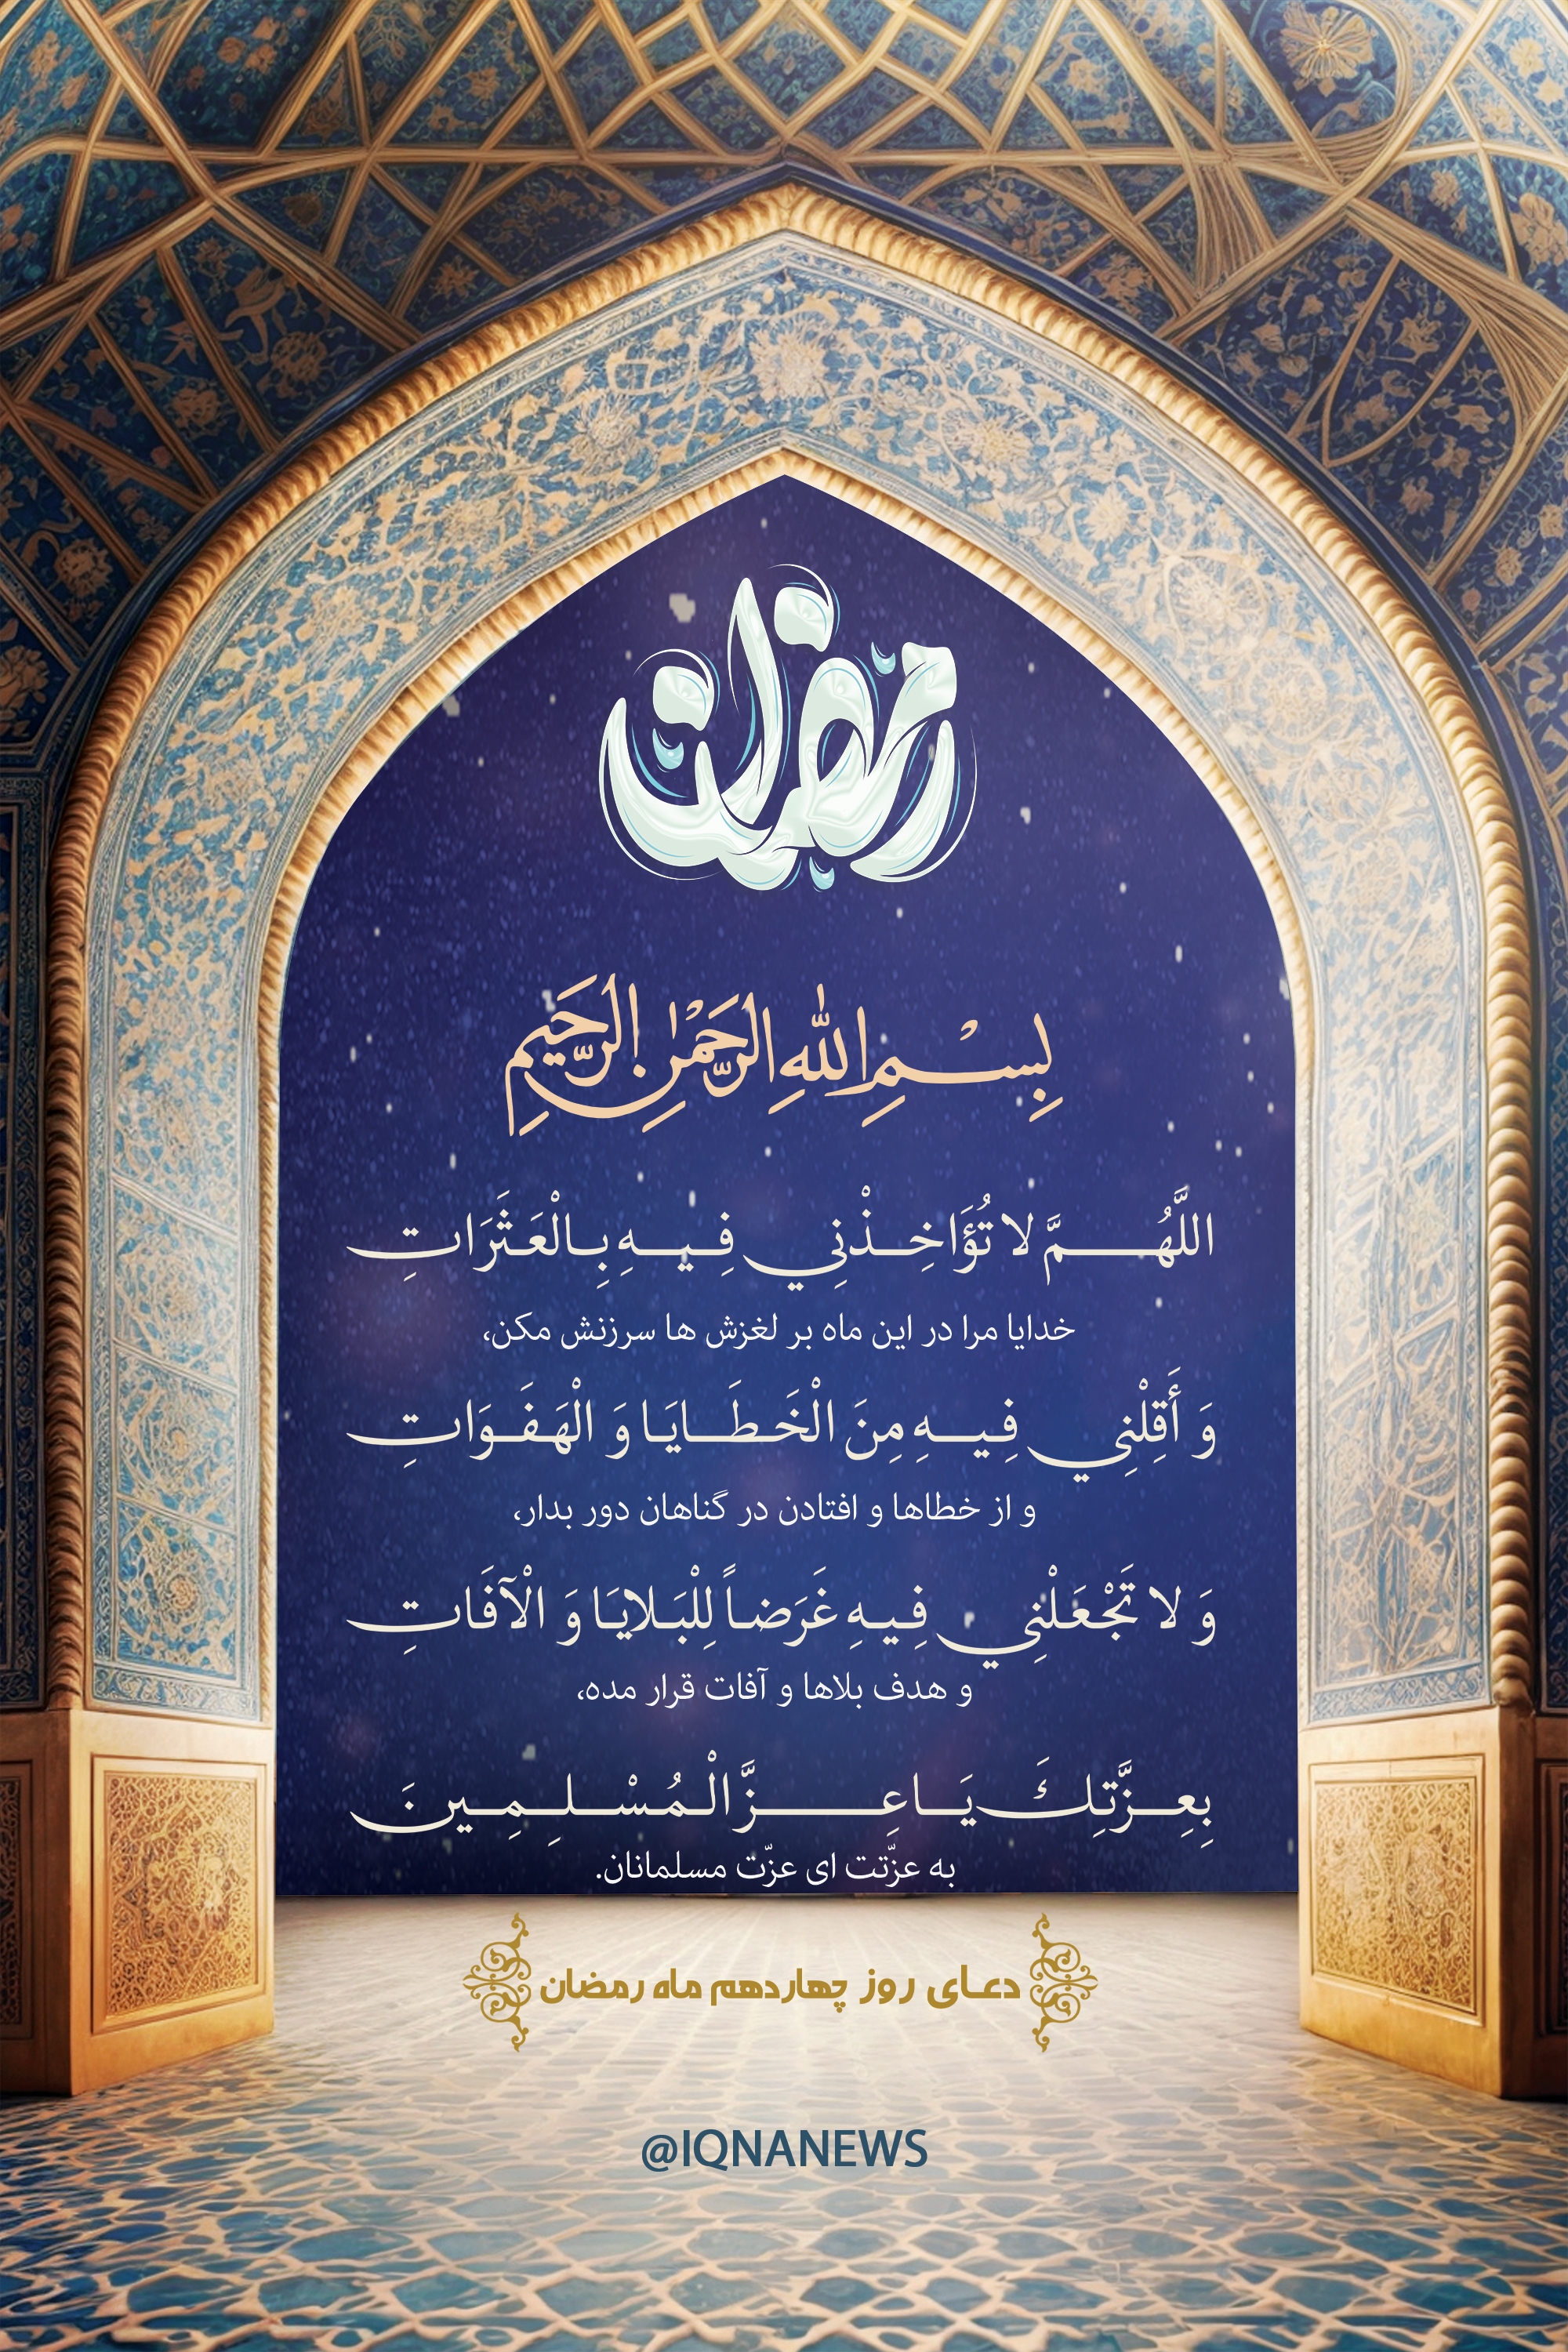 رمضان
بِسْمِ اللّٰهِ الرَّحْمٰنِ الرَّحِیمِ
اللَّهُمَّ لا تُؤَاخِذْنِي فِيهِ بِالْعَثَرَاتِ
خدایا مرا در این ماه بر لغزش ها سرزنش مکن،
وَ أَقِلْنِي فِيهِ مِنَ الْخَطَايَا وَ الْهَفَوَاتِ
و از خطاها و افتادن در گناهان دور بدار،
وَ لا تَجْعَلْنِي فِيهِ غَرَضاً لِلْبَلايَا وَ الْآفَاتِ
و هدف بلاها و آفات قرار مده،
بِعِزَّتِكَ يَا عِزَّ الْمُسْلِمِينَ
به عزّتت ای عزّت مسلمانان.
دعای روز چهاردهم ماه رمضان
@IQNANEWS